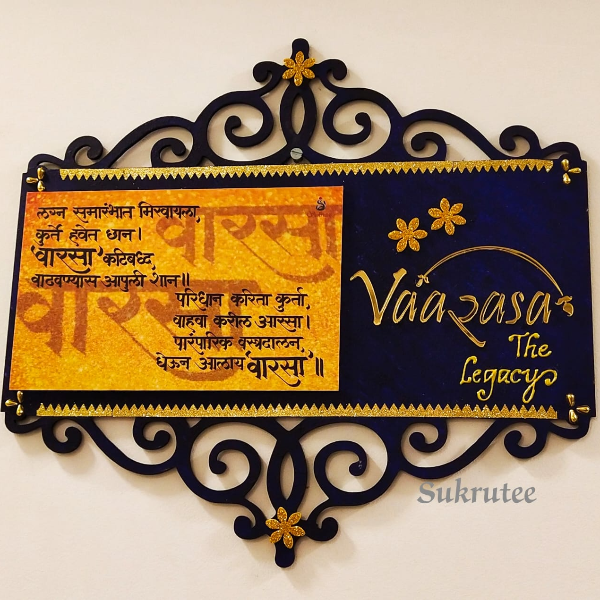 लग्न समारंभात मिरवायला,
कुर्ते हवेत छान।
'वारसा' कटिबध्द,
वाढवण्यास आपुली शान॥
परिधान करिता कुर्ता,
वाहवा करील आरसा।
पारंपारिक वस्त्रदालन,
घेऊन आलाय 'वारसा'॥
वारसा
वारसा
Vaarasa
The
Legacy
Sukrutee